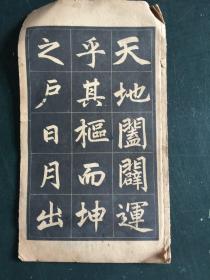 天地闔闢運
乎其樞而坤
之户日月出